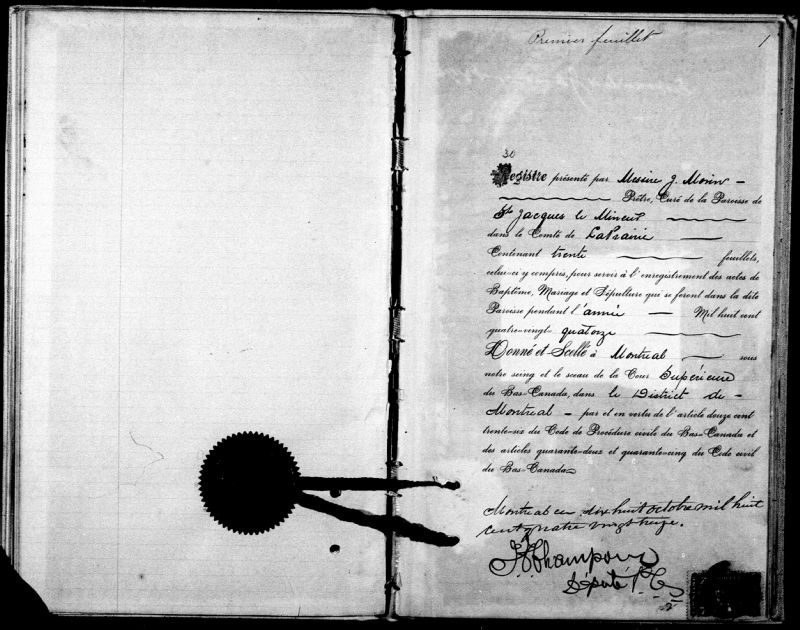 Premier feuillet
1
30
Registre présenté par Messire J. Morin –
Prêtre, Curé de la Paroisse de
St. Jacques le Mineur
dans le Comté de LaPrairie
Contenant trente feuillets,
celui-ci y compris, pour servir à l'enregistrement des actes de
Baptême, Mariage et Sépulture qui se feront dans la dite
Paroisse pendant l'année — Mil huit cent
quatre-vingt quatorze
Donné et Scellé à Montréal sous
notre seing et le sceau de la Cour Supérieure
du Bas-Canada, dans le District de –
Montreal – par et en vertu de l'article douze cent
trente-six du Code de Procédure civile du Bas-Canada et
des articles quarante-deux et quarante-cinq du Code civil
du Bas-Canada.
Montreal ce dix huit octobre mil huit
cent quatre vingt treize.
Député P.